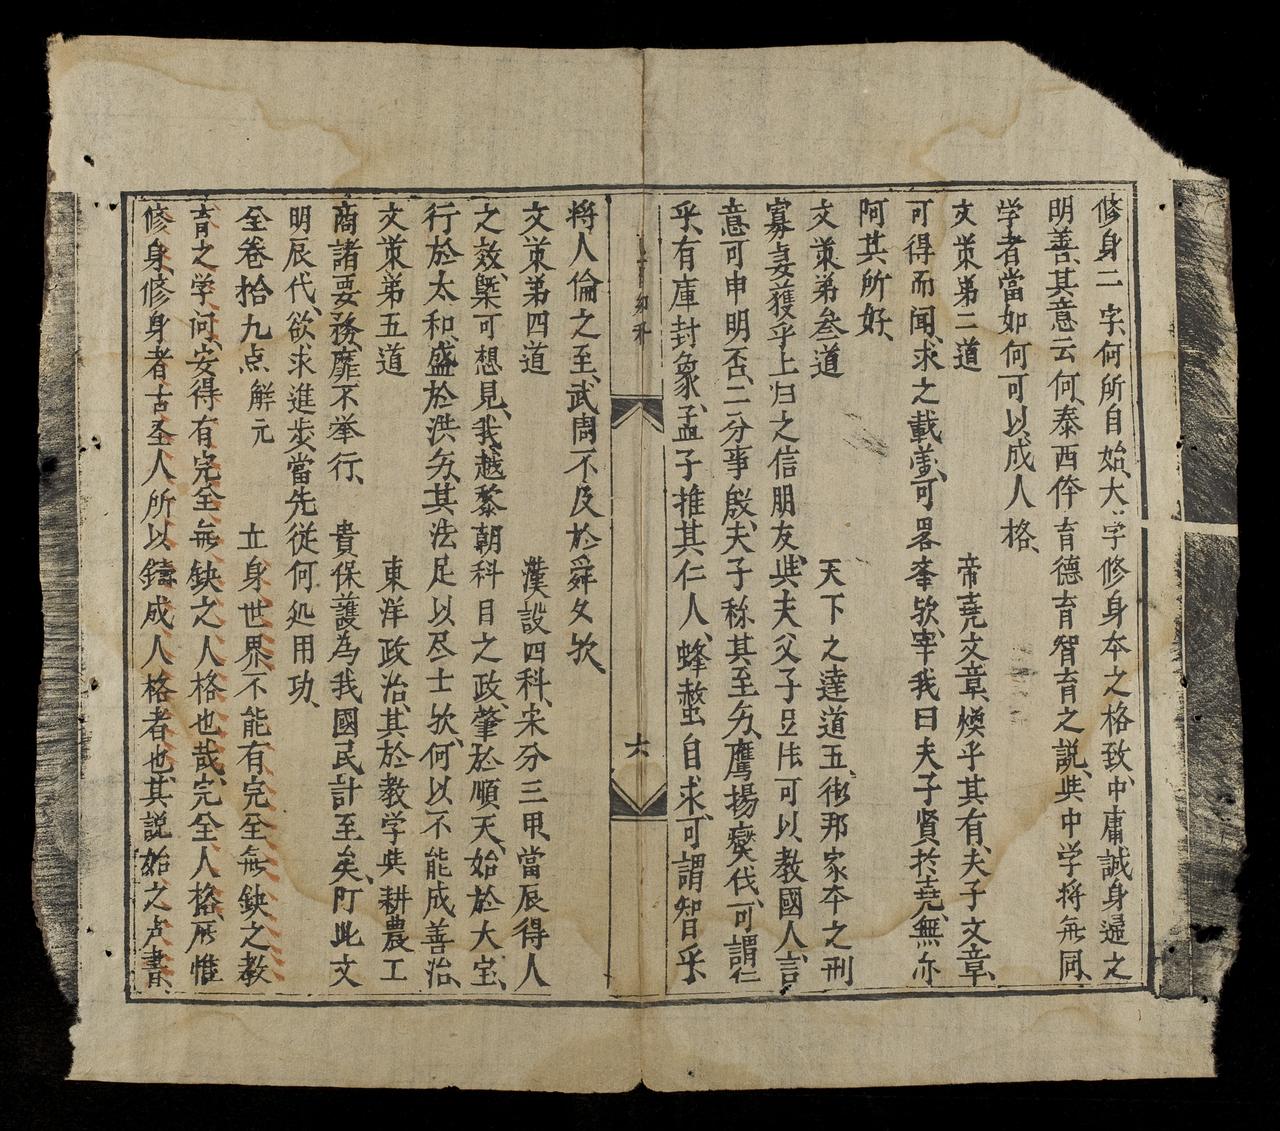 修身二字何所自始、大学修身本之格致、中庸誠身歸之
明善、其意云何、泰西体育德育智育之説、與中学将無同、
学者當如何可以成人格、
文策第二道 帝堯文章、煥乎其有、夫子文章、
可得而聞、求之載籍、可畧夆欤、宰我曰夫子賢於堯、無亦
阿其所好、
文策第叁道 天下之達道五、御邦家本之刑
寡妻、獲乎上归之信朋友、與夫父子足法可以教國人、言
意可申明否、二分事殷、夫子称其至矣、鷹揚燮伐、可謂仁
乎、有庳封象、孟子推其仁人、蜂螫自求、可謂智乎
六
将人倫之至、武周不及於舜文欤
文策第四道 漢設四科、宋分三甲、當辰得人
之效、槩可想見、我越黎朝科目之政、肇於順天、始於大宝、
行於太和、盛於洪、矣其法足以尽士欤、何以不能成善治、
文策第五道 東洋政治、其於教学與耕農工
商諸要務、靡不举行、 貴保護為我國民計至矣、盯此文
明辰代、欲求進步、當先從何処用功、
仝卷拾九点 解元 立身世界不能有完全無缺之教
育之学、问、安得有完全無缺之人格也哉、完全人格、所惟
修身、修身者、古圣人所以鑄成人格者也、其説始之虞書、